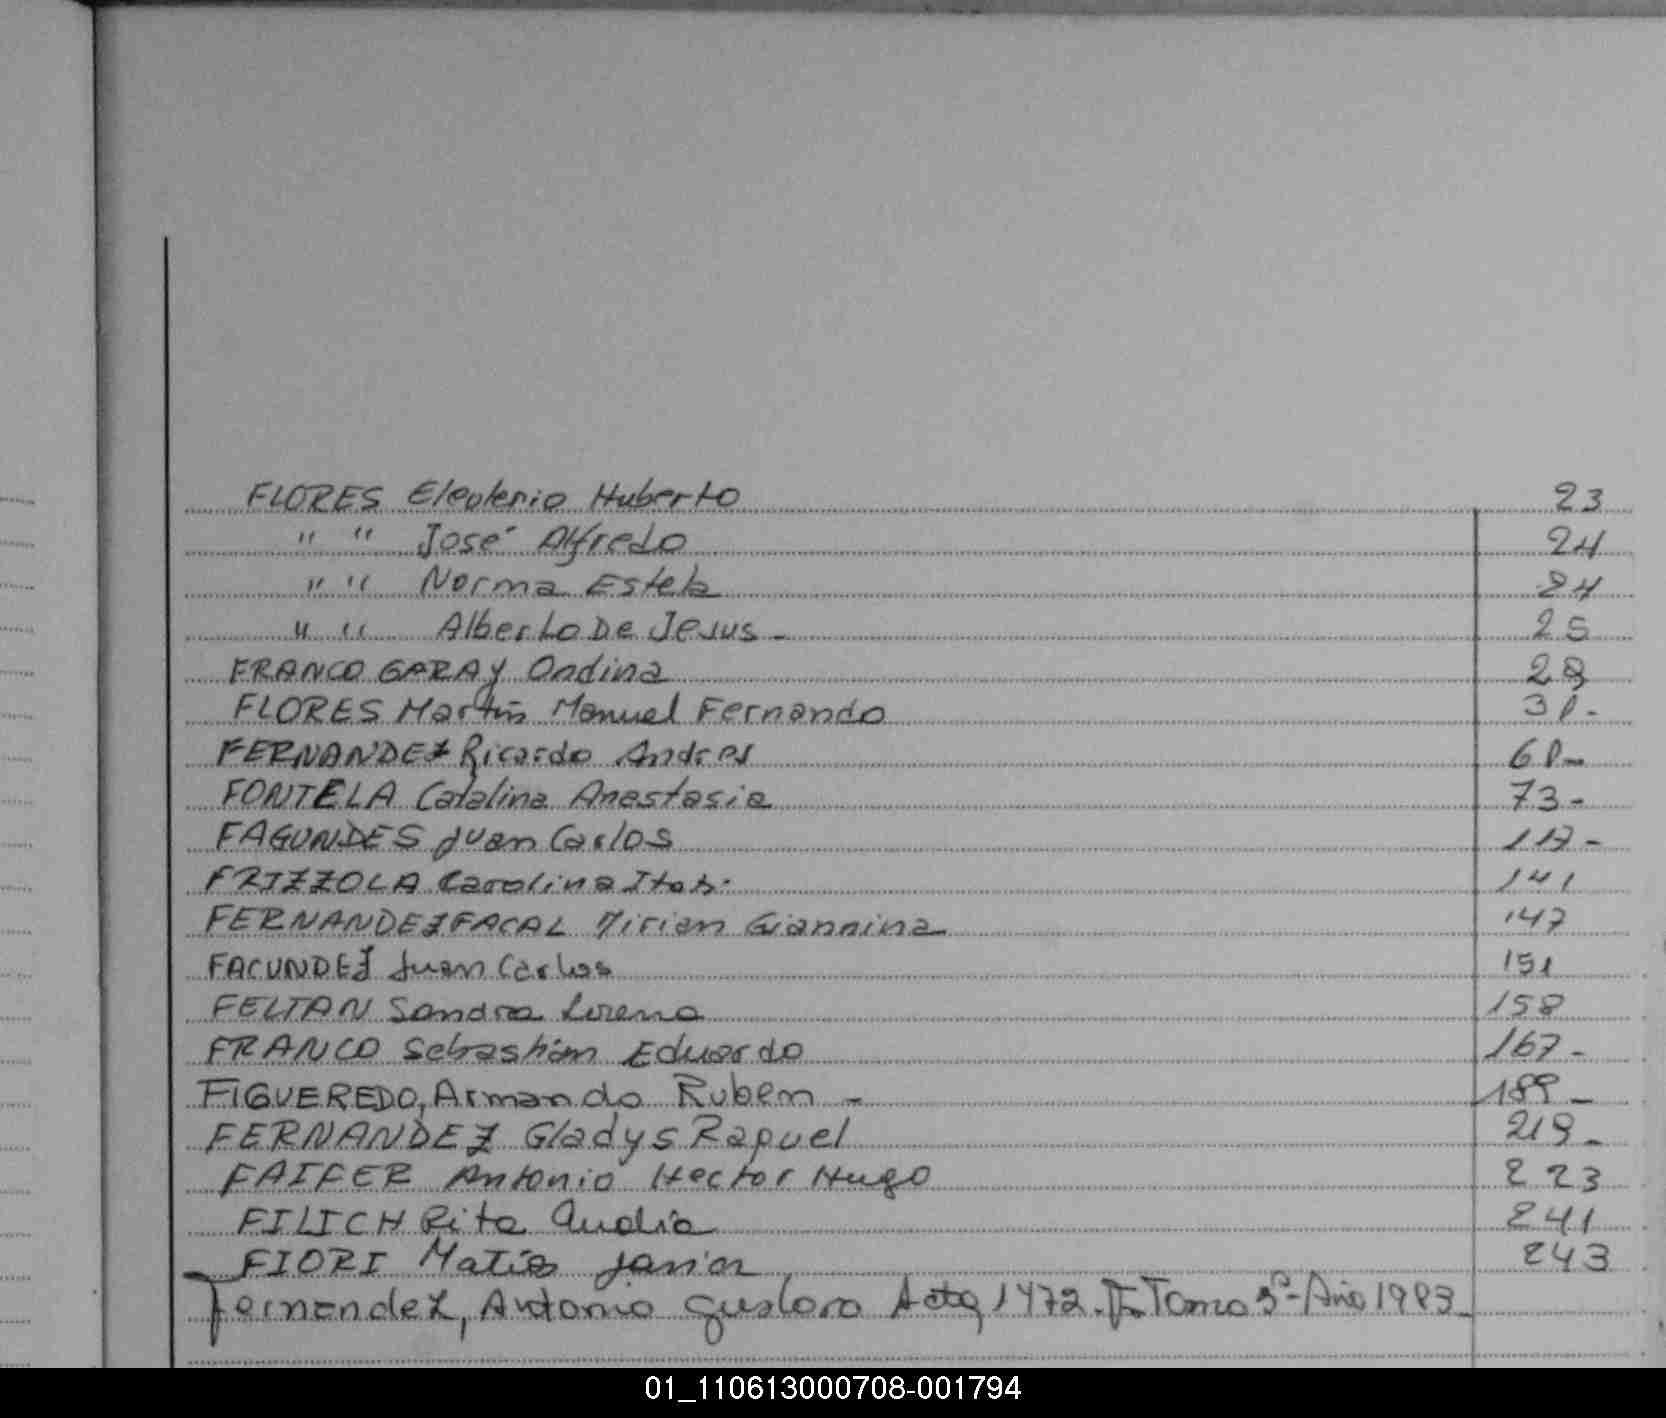 FLORES Eleoterio Huberto 23
" " José Alfredo 24
" " Norma Estela 24
" " Alberto De Jesus - 25
FRANCO GARAY Ondina 28
FLORES Martin Manuel Fernando 31-
FERNANDEZ Ricardo Andres
FONTELA Catalina Anestasia 73-
FAGUNDES Juan Carlos 117-
FRIZZOLA Carolina 141
FERNANDEZ FACAL Mirian Giannina 147
FACUNDEZ Juan Carlos 151
FELTAN Sandra Lorena 158
FRANCO Sebastián Eduardo 167-
FIGUEREDO, Armando Ruben - 189-
FERNANDEZ Gladys Raquel 219-
FAIFER Antonio Hector Hugo 223
FILICH Rita 241
FIORI Matías Javier 243
Fernandez, Antonio Gustavo Acta 1472. Tomo 3º- Año 1983-
01_110613000708-001794